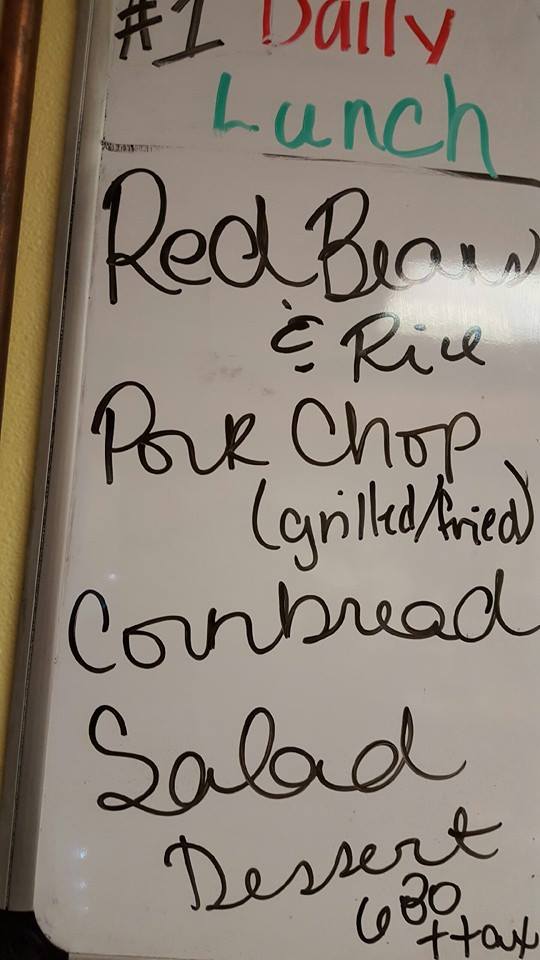 #1 Daily
Lunch
Red Beans
& Rice
Pork Chop
(grilled/fried)
Cornbread
Salad
Dessert
6 80
+tax